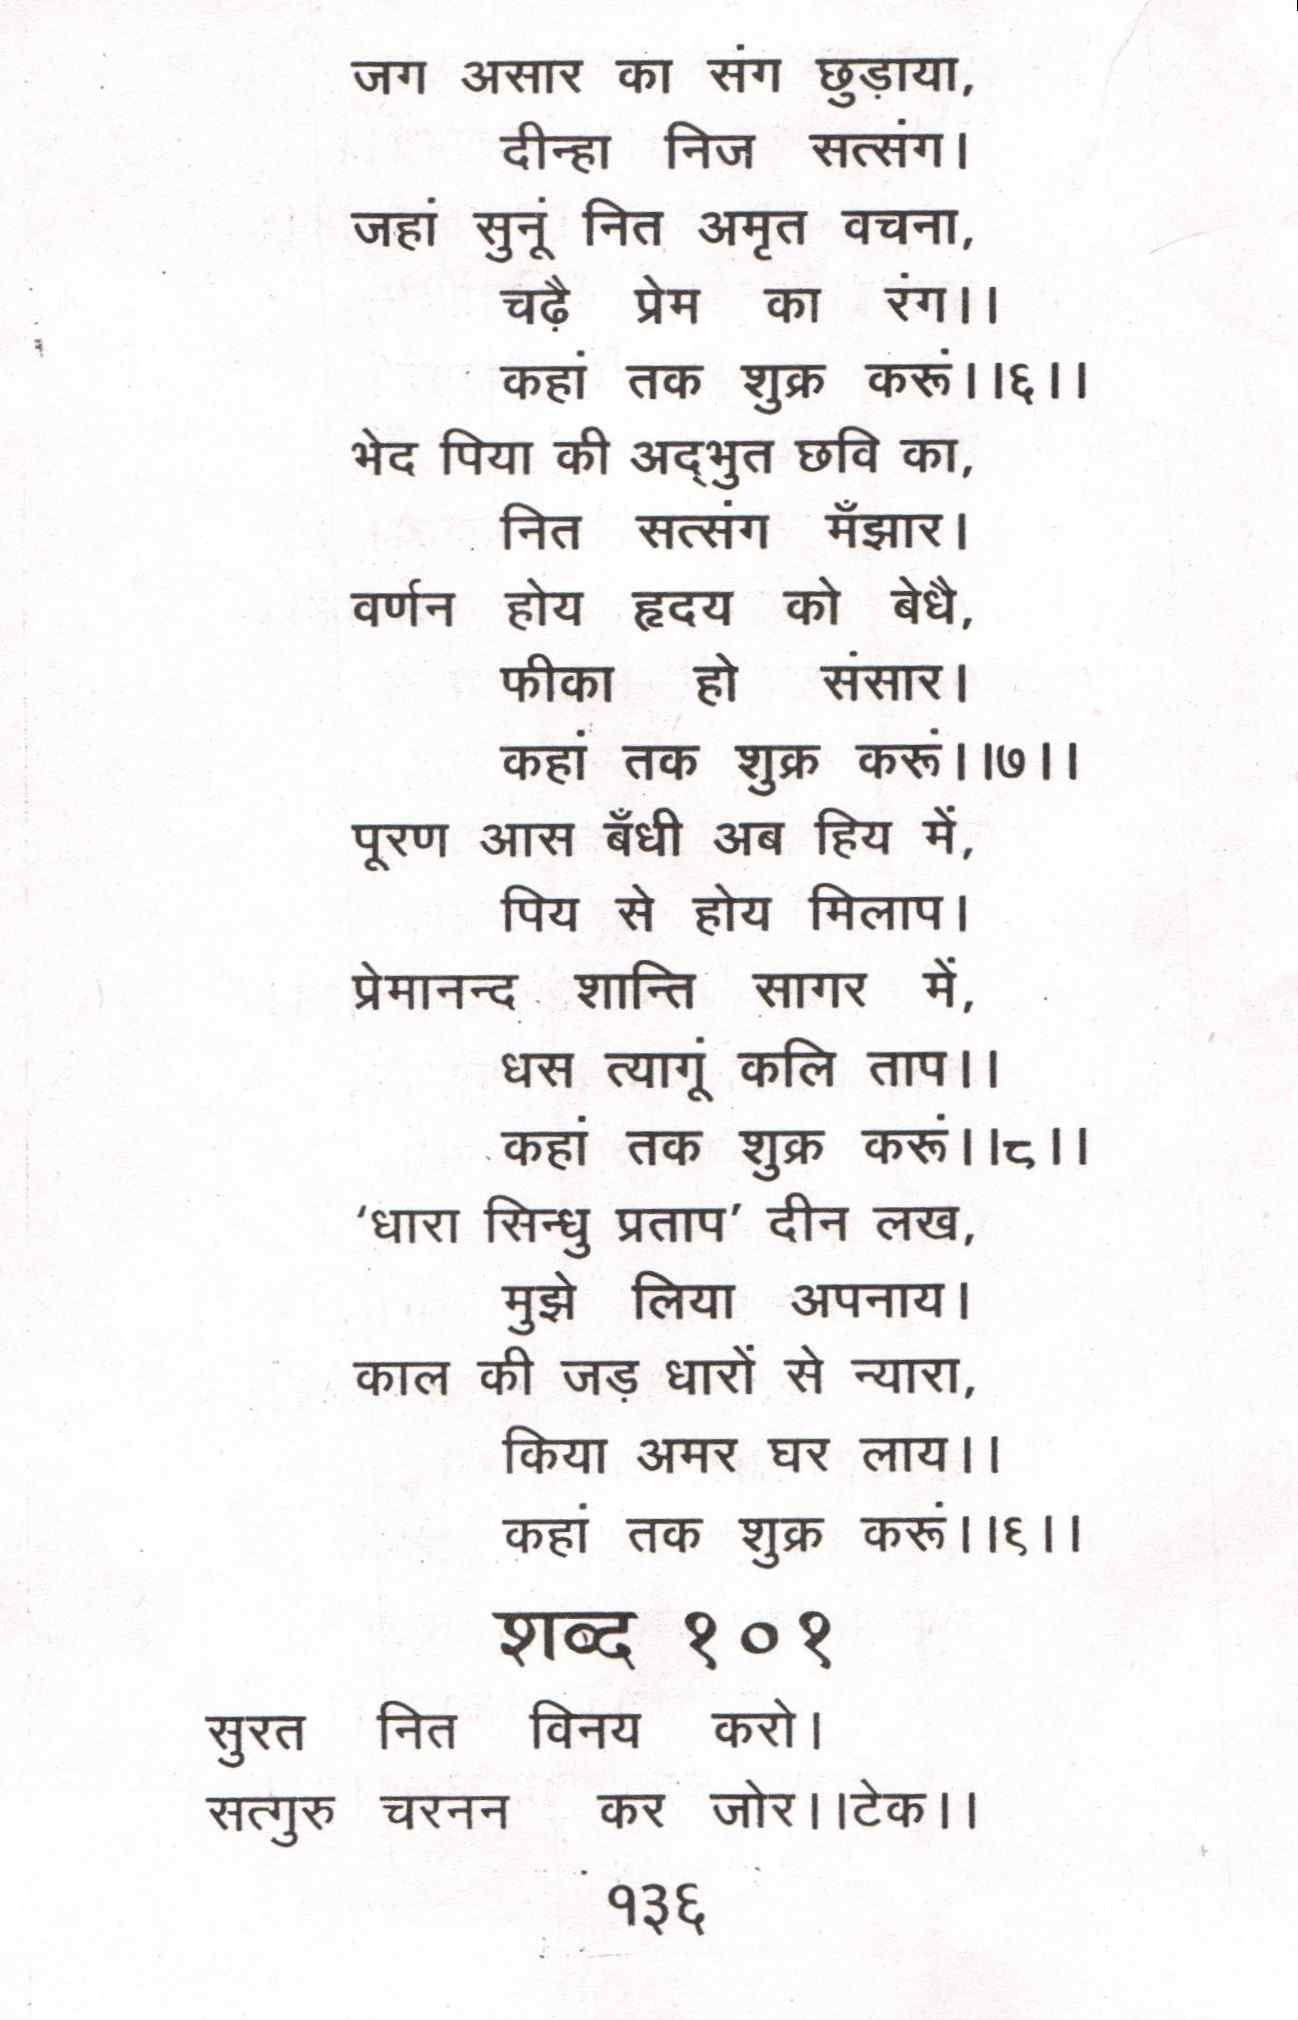 जग असार का संग छुड़ाया,
दीन्हा निज सत्संग।
जहां सुनूं नित अमृत वचना,
चढ़ै प्रेम का रंग।।
कहां तक शुक्र करूं।।६।।
भेद पिया की अद्‌भुत छवि का,
नित सत्संग मँझार।
वर्णन होय हृदय को बेधै,
फीका हो संसार।
कहां तक शुक्र करूं।।७।।
पूरण आस बँधी अब हिय में,
पिय से होय मिलाप।
प्रेमानन्द शान्ति सागर में,
धस त्यागूं कलि ताप।।
कहां तक शुक्र करूं।।८।।
‘धारा सिन्धु प्रताप’ दीन लख,
मुझे लिया अपनाय।
काल की जड़ धारों से न्यारा,
किया अमर घर लाय।।
कहां तक शुक्र करूं।।६।।
शब्द १०१
सुरत नित विनय करो।
सत्गुरु चरनन कर जोर।।टेक।।
१३६